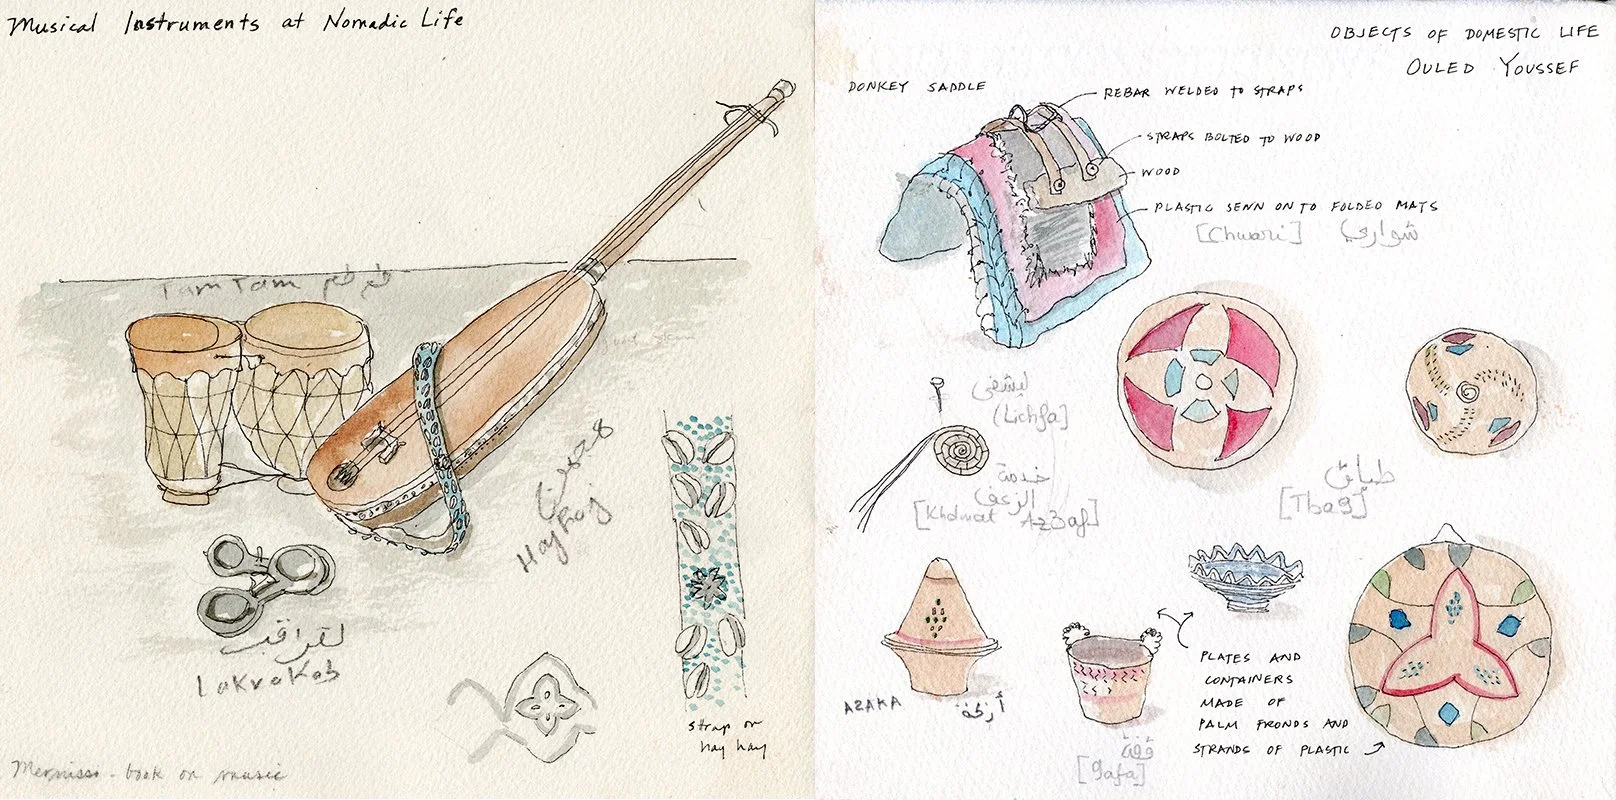 Musical Instruments at Nomadic Life
Tam Tam طم طم
HayHouj
لقراقب
LaKraKab
strap on
hay hay
Mernissi - book on music
OBJECTS OF DOMESTIC LIFE
OULED YOUSSEF
DONKEY SADDLE
REBAR WELDED TO STRAPS
STRAPS BOLTED TO WOOD
WOOD
PLASTIC SEWN ON TO FOLDED MATS
[Chwari] شواري
ليشفى
(Lichfa]
خدمة
الزعف
[Khdmat Az3af]
طباق
[Tbag]
AZAKA أزكة
PLATES AND
CONTAINERS
MADE OF
PALM FRONDS AND
STRANDS OF PLASTIC
قفة
[gafa]